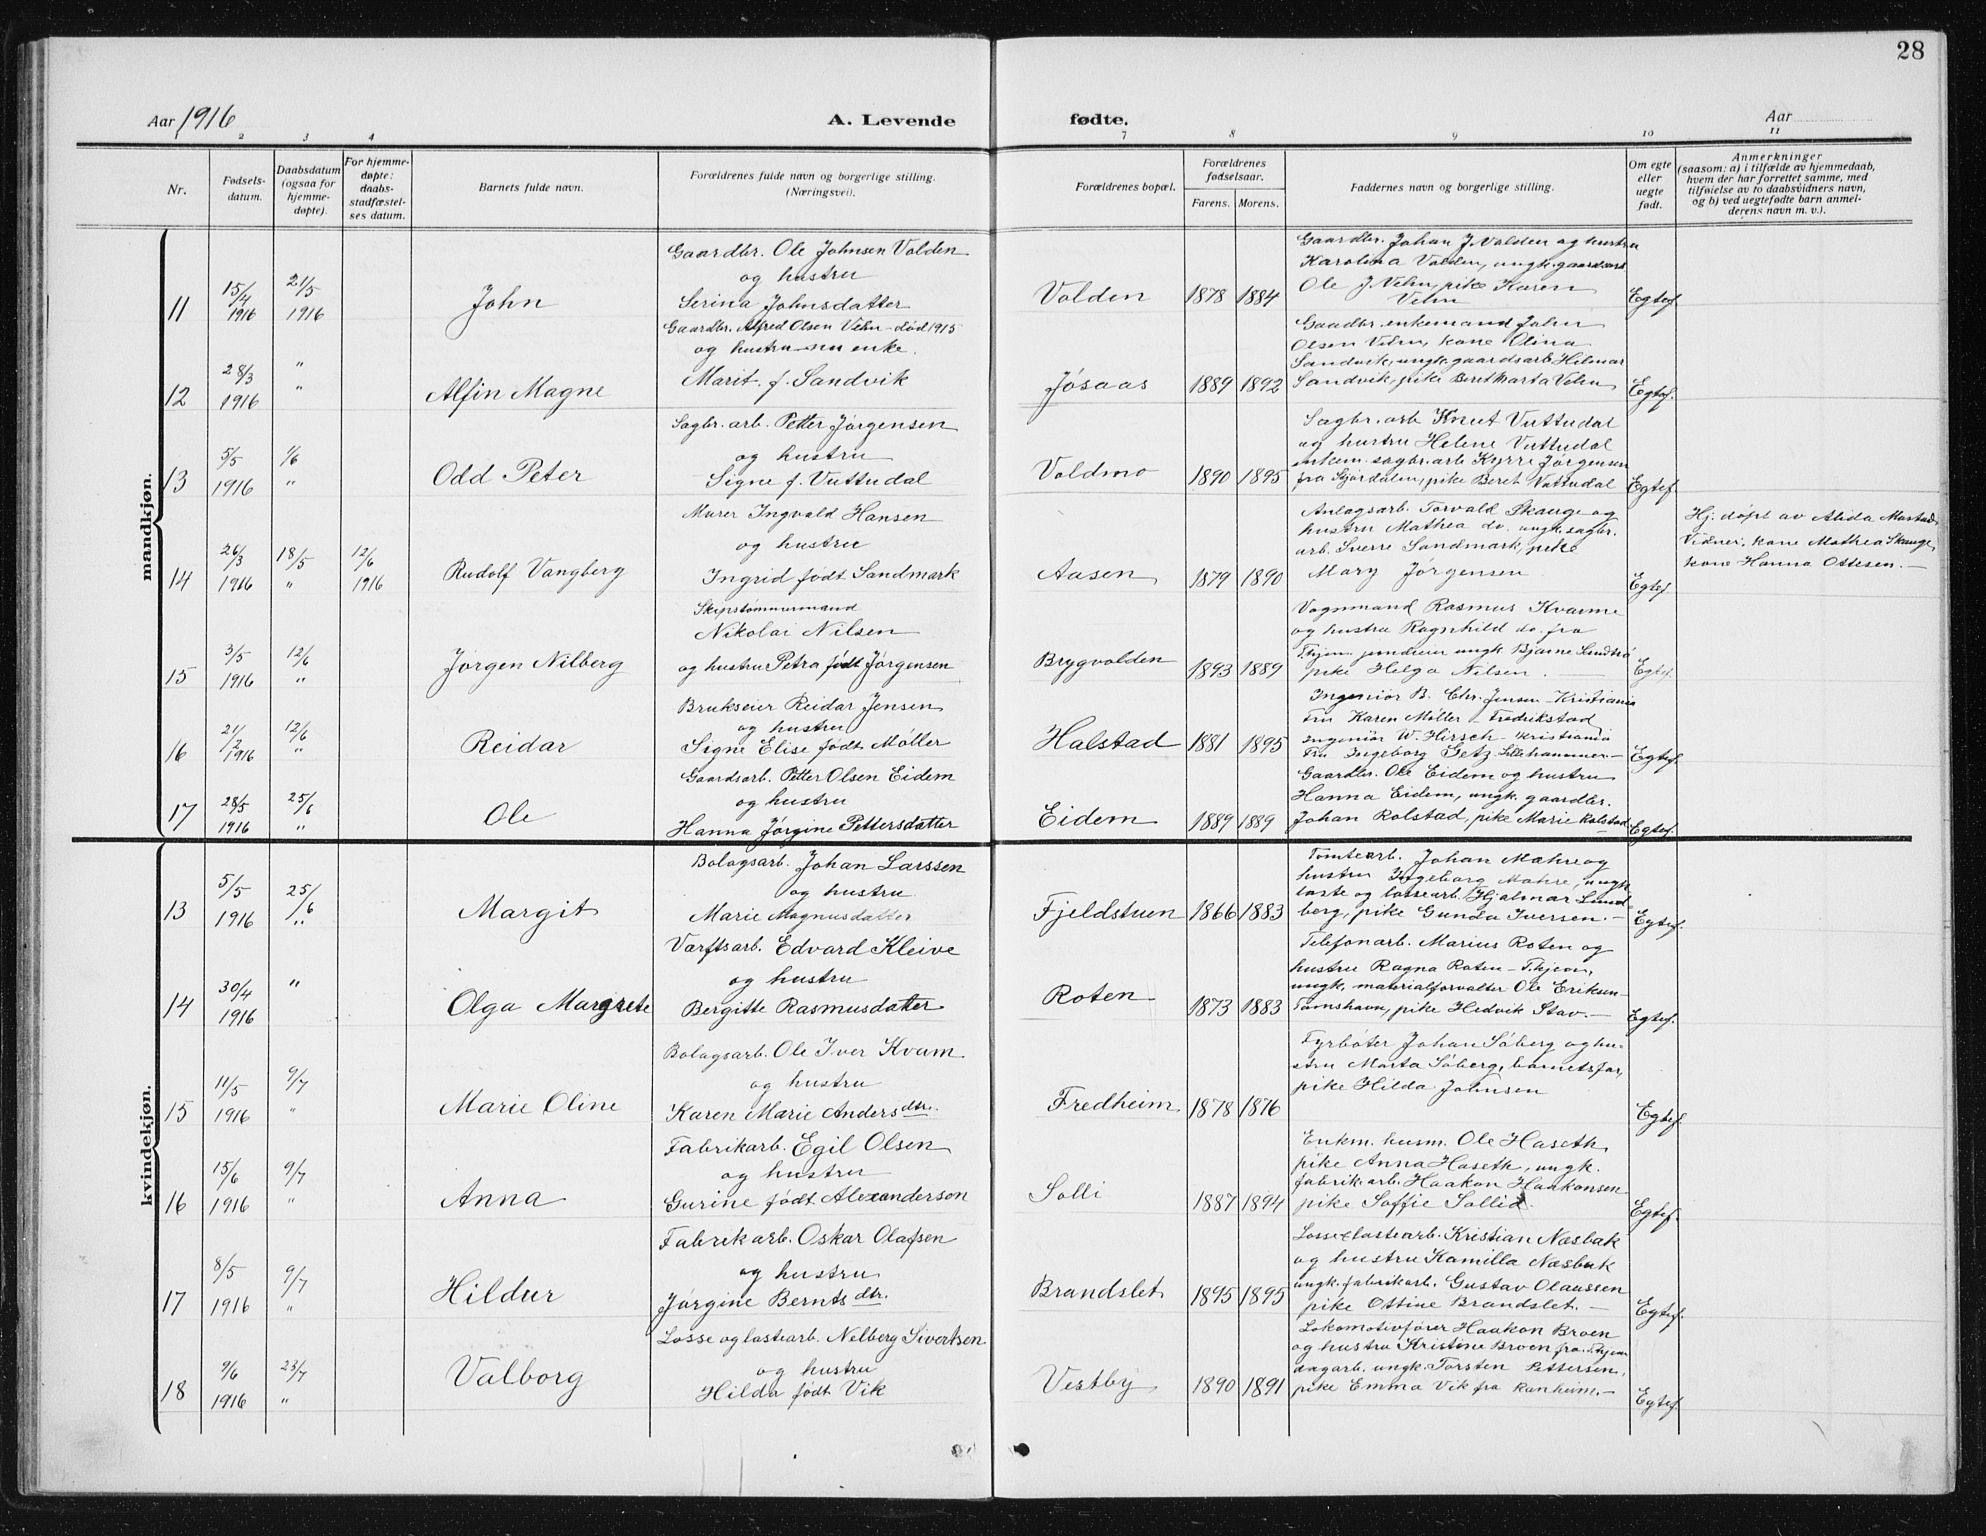 28
Aar 1916
A. Levende fødte.
Aar
1 2 3 4 7 8 9 10 11
Nr.
Fødsels-
datum.
Daabsdatum
(ogsaa for
hjemme-
døpte).
For hjemme-
døpte:
daabs-
stadfæstel-
ses datum.
Barnets fulde navn.
Forældrenes fulde navn og borgerlige stilling.
(Næringsvei).
Forældrenes bopæl.
Forældrenes
fødselsaar.
Farens. Morens.
Faddernes navn og borgerlige stilling.
Om egte
eller
uegte
født.
Anmerkninger
(saasom: a) i tilfælde av hjemmedaab,
hvem der har forrettet samme, med
tilføielse av to daabsvidners navn,
og b) ved uegtefødte barn anmel-
derens navn m. v.).
mandkjøn.
11
15/4
1916
21/5
1916
John
Gaardbr. Ole Johnsen Volden
og hustru
Serina Johnsdatter
Volden
1878 1884
Gaardbr. Johan J. Volden og hustru
Karolina Volden, ungk. gaardsarb
Ole J. Vehn, pike Karen
Vehn
Egtef.
12
28/3
1916
"
"
Alfin Magne
Gaardbr. Alfred Olsen Vehn - død 1915
og hustru - nu enke.
Marit. f. Sandvik
Jøsaas
1889 1892
Gaardbr. enkemand John
Olsen Vehn, kone Olina
Sandvik, ungk. gaardsarb. Hilmar
Sandvik, pike Beret Marta Vehn
Egtef.
13
5/5
1916
1/6
"
Odd Peter
Sagbr. arb. Petter Jørgensen
og hustru
Signe f. Vuttudal
Voldmo
1890 1895
Sagbr. arb Knut Vuttudal
og hustru Helene Vuttudal
enkem. sagbr. arb Kyrre Jørgensen
fra Stjørdalen, pike Beret Vuttudal
Egtef.
14
26/3
1916
18/5
"
12/6
1916
Rudolf Vangberg
Murer Ingvald Hansen
og hustru
Ingrid født Sandmark
Aasen
1879 1890
Anlagsarb. Torvald Skauge og
hustru Mathea do. ungk. sagbr.
arb. Sverre Sandmark, pike
Mary Jørgensen
Egtef.
Hj. døpt av Alida Mostad,
Vidner, kone Mathea Skauge,
kone Hanna Ottesen. —
15
3/5
1916
12/6
"
Jørgen Nilberg
Skipstømmermand
Nikolai Nilsen
og hustru Petra født Jørgensen
Brygvolden
1893 1889
Vognmand Rasmus Kvamme
og hustru Ragnhild do. fra
T.hjem. ungk. Bjarne
pike Helga Nilsen. —
Egtef.
16
21/2
1916
12/6
"
Reidar
Brukseier Reidar Jensen
og hustru
Signe Elise født Møller
Halstad
1881 1895
Ingeniør B. Chr. Jensen - Kristiania
Fru Karen Møller - Fredrikstad
Ingeniør W. Hirsch - Kristiania
Fru Ingeborg Getz - Lillehammer -
Egtef.
17
28/5
1916
25/6
"
Ole
Gaardsarb. Petter Olsen Eidem
og hustru
Hanna Jørgine Pettersdatter
Eidem
1889 1889
Gaardbr. Ole Eidem og hustru
Hanna Eidem, ungk. gaardbr.
Johan Rolstad, pike Marie Rolstad.
Egtef.
kvindekjøn.
13
5/5
1916
25/6
"
Margit
Bolagsarb. Johan Larssen
og hustru
Marie Magnusdatter
Fjeldstuen
1866 1883
Tomtearb. Johan Mæhre og
hustru Ingeborg Mæhre, ungk.
laste og lossearb. Hjalmar Lund-
berg, pike Gunda Iversen. —
Egtef.
14
30/4
1916
"
Olga Margrete
Varftsarb. Edvard Kleive
og hustru
Bergitte Rasmusdatter
Roten
1873 1883
Telefonarb. Marius Roten og
hustru Ragna Roten - T.hjem,
ungk. materialforvalter Ole Eriksen -
Tømshavn, pike Hedvik Stav. —
Egtef.
15
11/5
1916
9/7
"
Marie Oline
Bolagsarb. Ole Iver Kvam
og hustru
Karen Marie Andersdtr.
Fredheim
1878 1876
Fyrbøter Johan Søberg og hu-
stru Marta Søberg, barnets far,
pike Hilda Johnsen
Egtef.
16
15/6
1916
9/7
"
Anna
Fabrikarb. Egil Olsen
og hustru
Gurine født Alexanderson
Solli
1887 1894
Enkm. husm. Ole Haseth
pike Anna Haseth, ungk.
fabrikarb. Haakon Haakonsen
pike Soffie Sollid.
Egtef.
17
8/5
1916
9/7
"
Hildur
Fabrikarb. Oskar Olafsen
og hustru
Jørgine Berntsdtr.
Brandslet
1895 1895
Losse & lastearb. Kristian Næsbak
og hustru Kamilla Næsbak
ungk. fabrikarb. Gustav Olaussen
pike Ottine Brandslet. —
Egtef.
18
9/6
1916
23/7
"
Valborg
Losse og lastearb. Nelberg Sivertsen
og hustru
Hilda født Vik
Vestby
1890 1891
Lokomotivfører Haakon Broen
og hustru Kristine Broen fra T.hjem
dagarb. ungk. Torsten Pettersen,
pike Emma Vik fra Ranheim. —
Egtef.